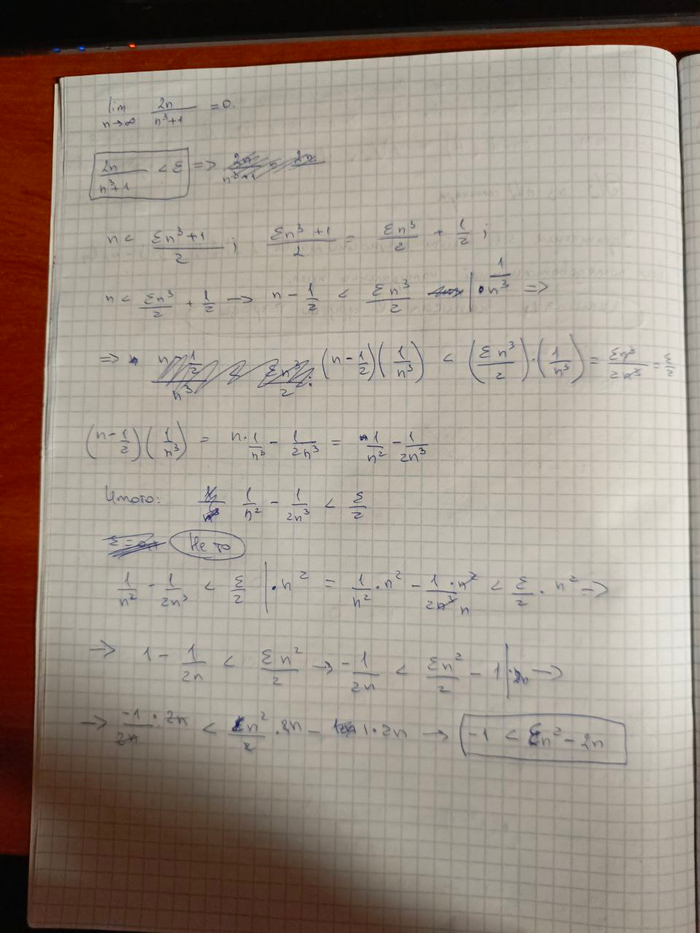 lim n→∞ 2n/(n³+1) = 0
2n/(n³+1) < Ɛ =>
n < (Ɛn³+1)/2 ; (Ɛn³+1)/2 = Ɛn³/2 + 1/2 ;
n < Ɛn³/2 + 1/2 → n - 1/2 < Ɛn³/2 | · 1/n³ =>
=> (n - 1/2)(1/n³) < (Ɛn³/2)·(1/n³) = Ɛn³/2n³ = Ɛ/2
(n - 1/2)(1/n³) = n·1/n³ - 1/2n³ = 1/n² - 1/2n³
Итого: 1/n² - 1/2n³ < Ɛ/2
Не то
1/n² - 1/2n³ < Ɛ/2 | · n² = 1/n² · n² - 1·n²/2n³ n < Ɛ/2 · n² →
→ 1 - 1/2n < Ɛn²/2 → -1/2n < Ɛn²/2 - 1 | · 2n →
→ -1/2n · 2n < Ɛn²/2 · 2n - 1·2n → -1 < Ɛn² - 2n